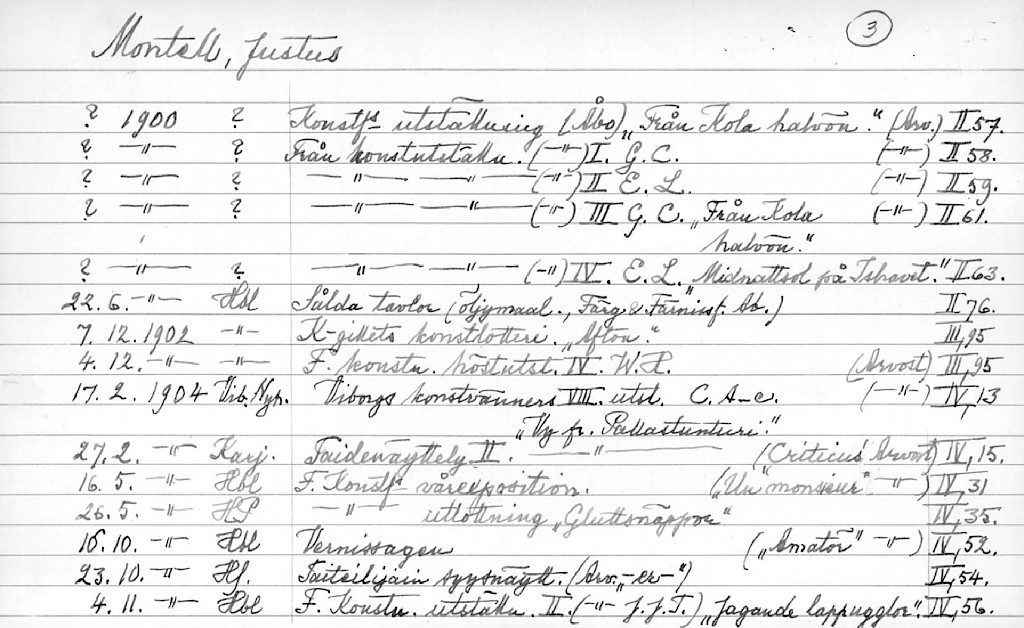 3
Montell, Justus
? 1900 ? Konstfs utställning (Åbo) „Från Kola halvön." (Arv.) II 57.
? —"— ? Från konstutställn. (—"—) I. G. C. (—"—) II 58.
? —"— ? —"— —"— (—"—) II E. L. (—"—) II 59.
? —"— ? —"— —"— (—"—) III G. C. „Från Kola (—"—) II 61.
halvön."
? —"— ? —"— —"— (—"—) IV. E. L. „Midnattsol på Ishavet." II 63.
22. 6. —"— Hbl Sålda tavlor (öljymaal., Färg & Färnissf. Ab.) II 76.
7. 12. 1902 —"— K-gillets konstlotteri. „Afton." III, 95
4. 12. —"— —"— F. konstn. höstutst. IV. W. R. (Arvost) III, 95
17. 2. 1904 Vib. Nyh. Viborgs konstvänners VIII. utst. C. A-c. (—"—) IV, 13
„Vy fr. Pallastunturi."
27. 2. —"— Karj. Taidenäyttely II. —"— (Criticus Arvost) IV, 15.
16. 5. —"— Hbl F. Konstfs vårexposition. („Un monsieur" —"—) IV, 31
26. 5. —"— HP —"— utlottning „Gluttsnäppor" IV, 35.
16. 10. —"— Hbl Vernissagen („Amatör" —"—) IV, 52.
23. 10. —"— Hf. Taiteilijain syysnäytt. (Arv. „-er-") IV, 54.
4. 11. —"— Hbl F. Konstn. utställn. II. (—"— J. J. T.) „Jagande lappugglor". IV, 56.